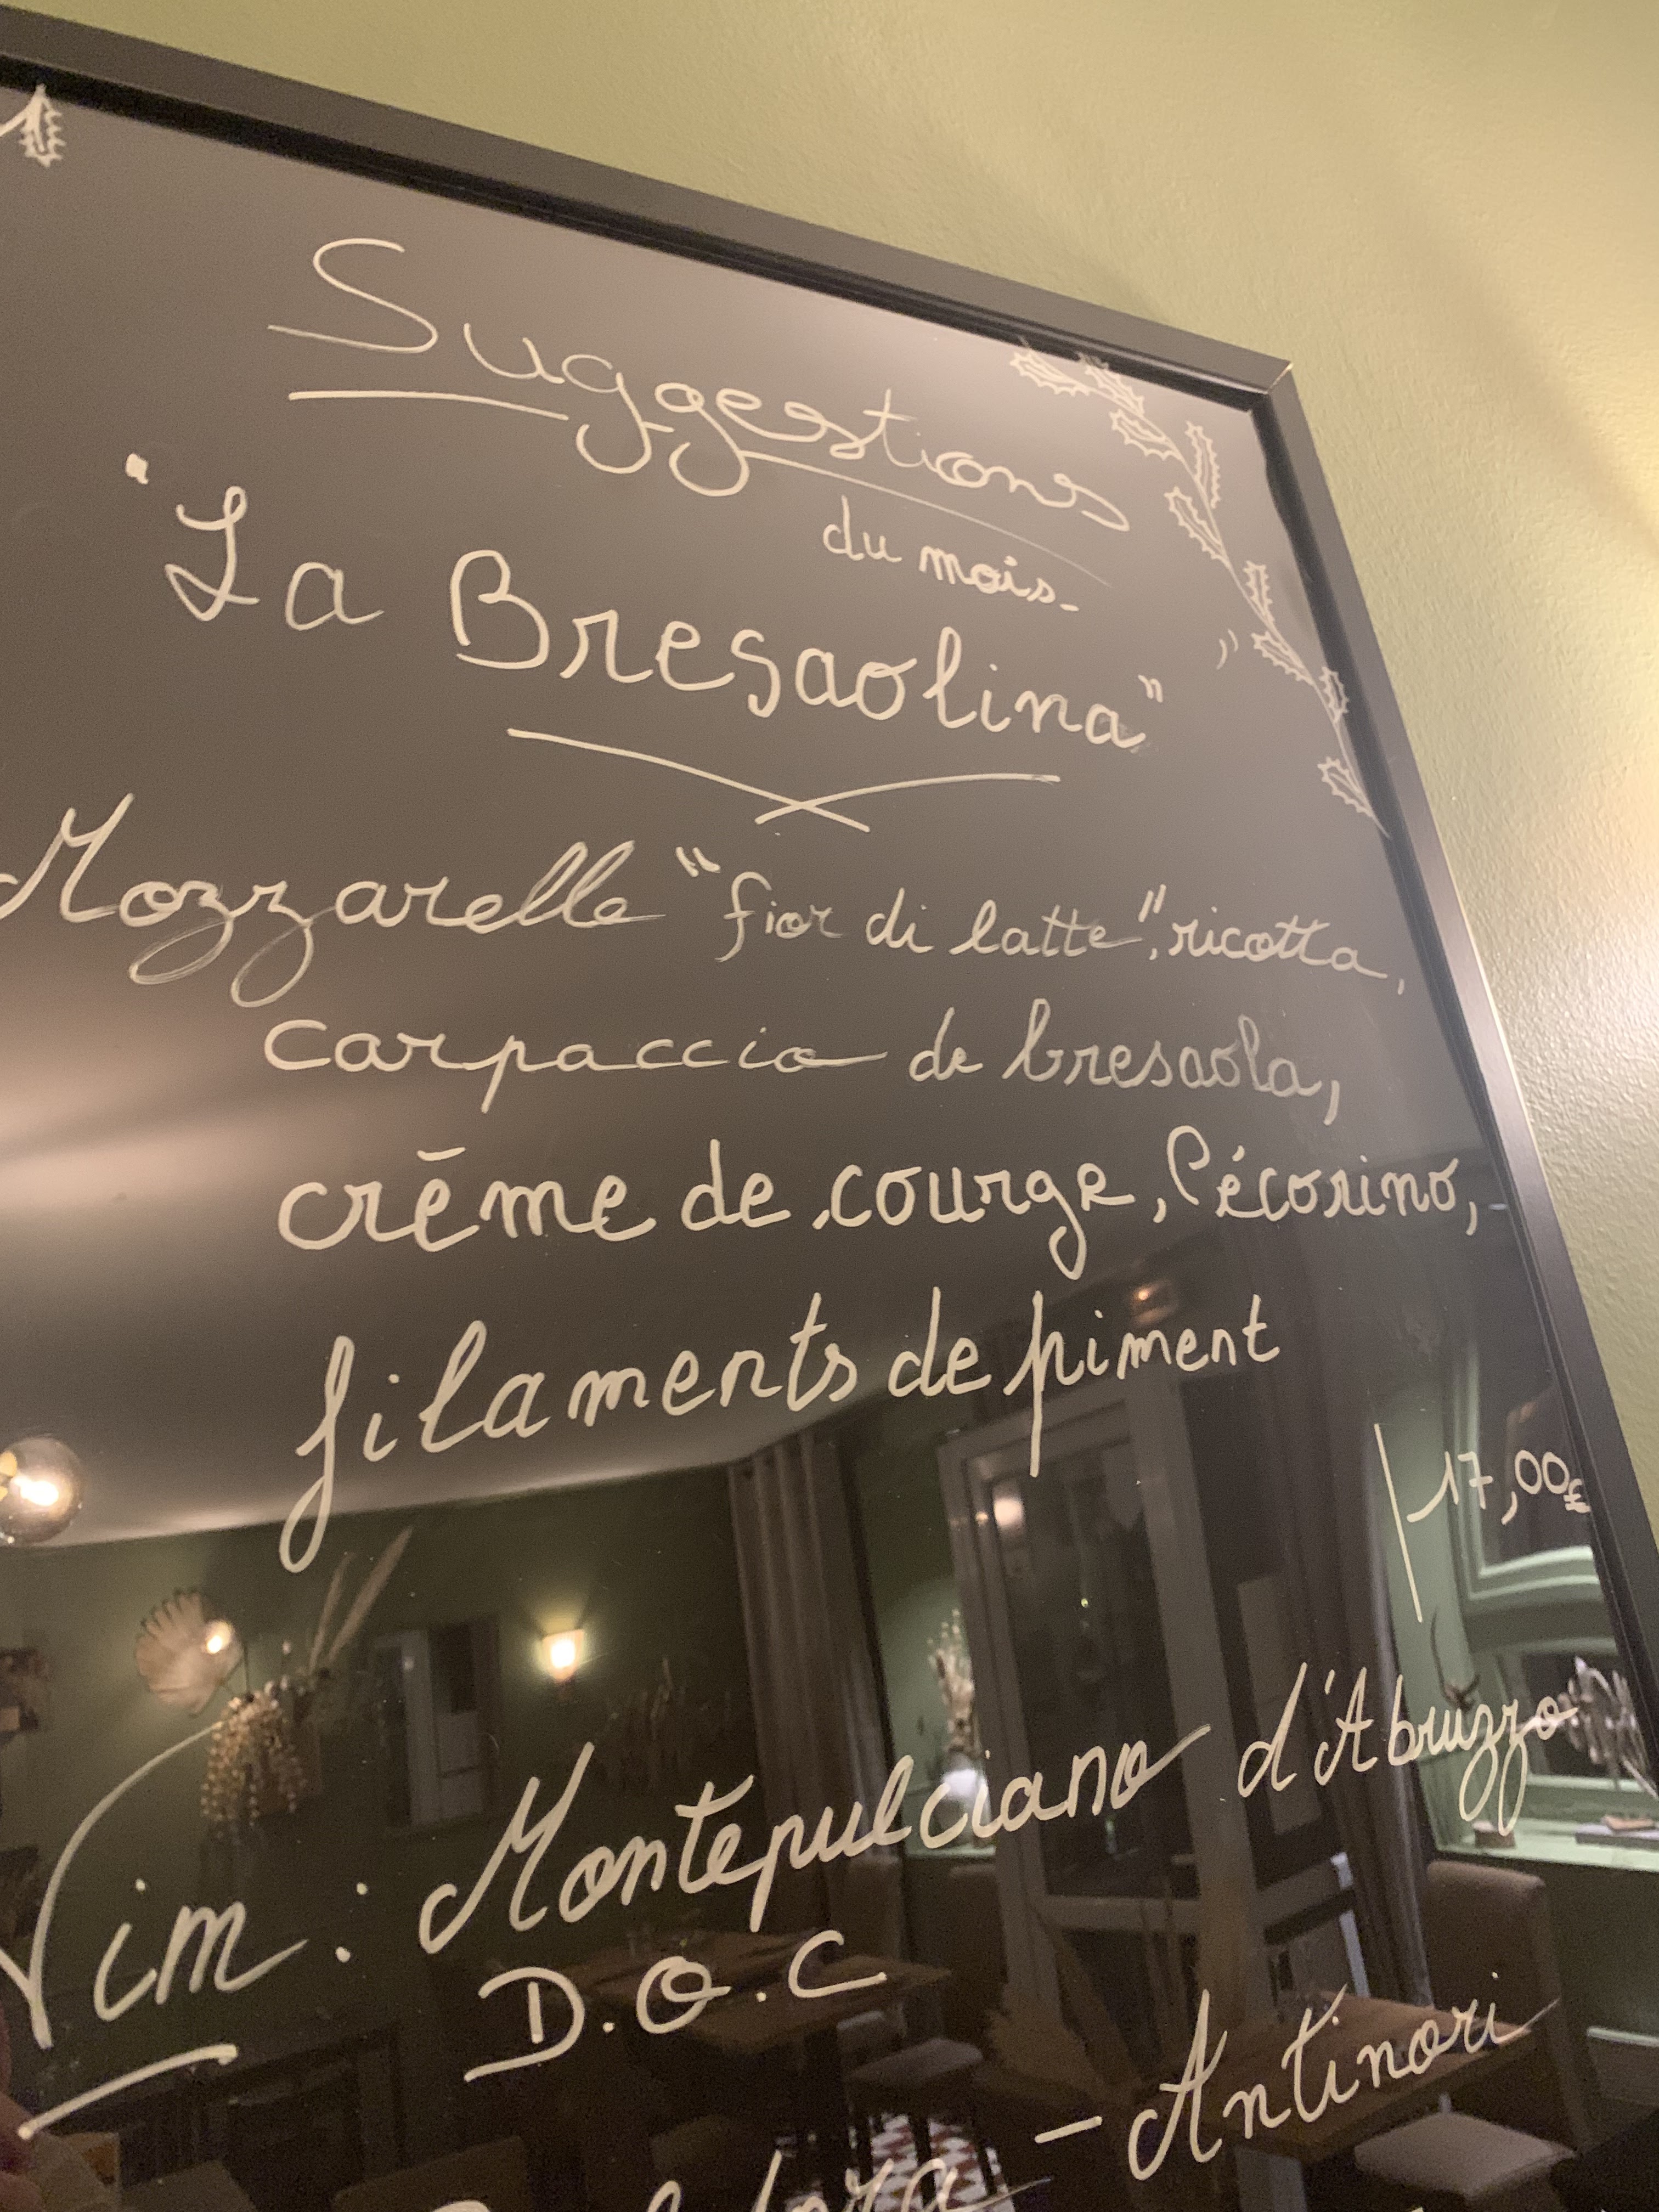 Suggestions
du mois-
"La Bresaolina"
Mozzarelle "fior di latte", ricotta,
carpaccio de bresaola,
crème de courge, Pécorino,
filaments de piment
17,00€
Vin : Montepulciano d'Abruzzo
D.O.C
- Antinori